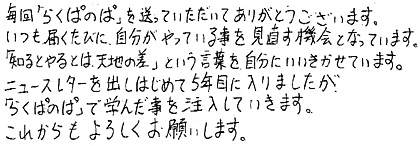 毎回「らくぱのぱ」を送っていただいてありがとうございます。
いつも届くたびに、自分がやっている事を見直す機会となっています。
「知るとやるとは天地の差」という言葉を自分にいいきかせています。
ニュースレターを出しはじめて5年目に入りましたが
「らくぱのぱ」で学んだ事を注入していきます。
これからもよろしくお願いします。